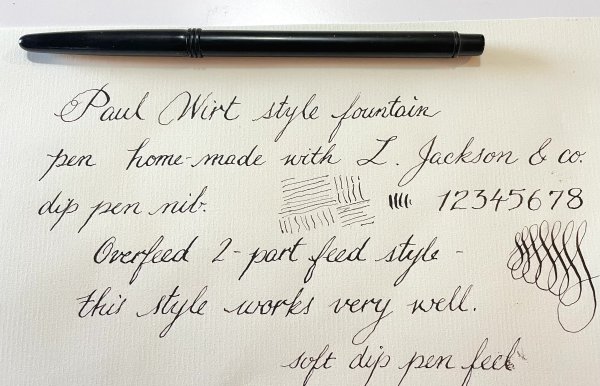 Paul Wirt style fountain
pen home-made with L. Jackson & co.
dip pen nib. 12345678
Overfeed 2-part feed style -
this style works very well.
soft dip pen feel